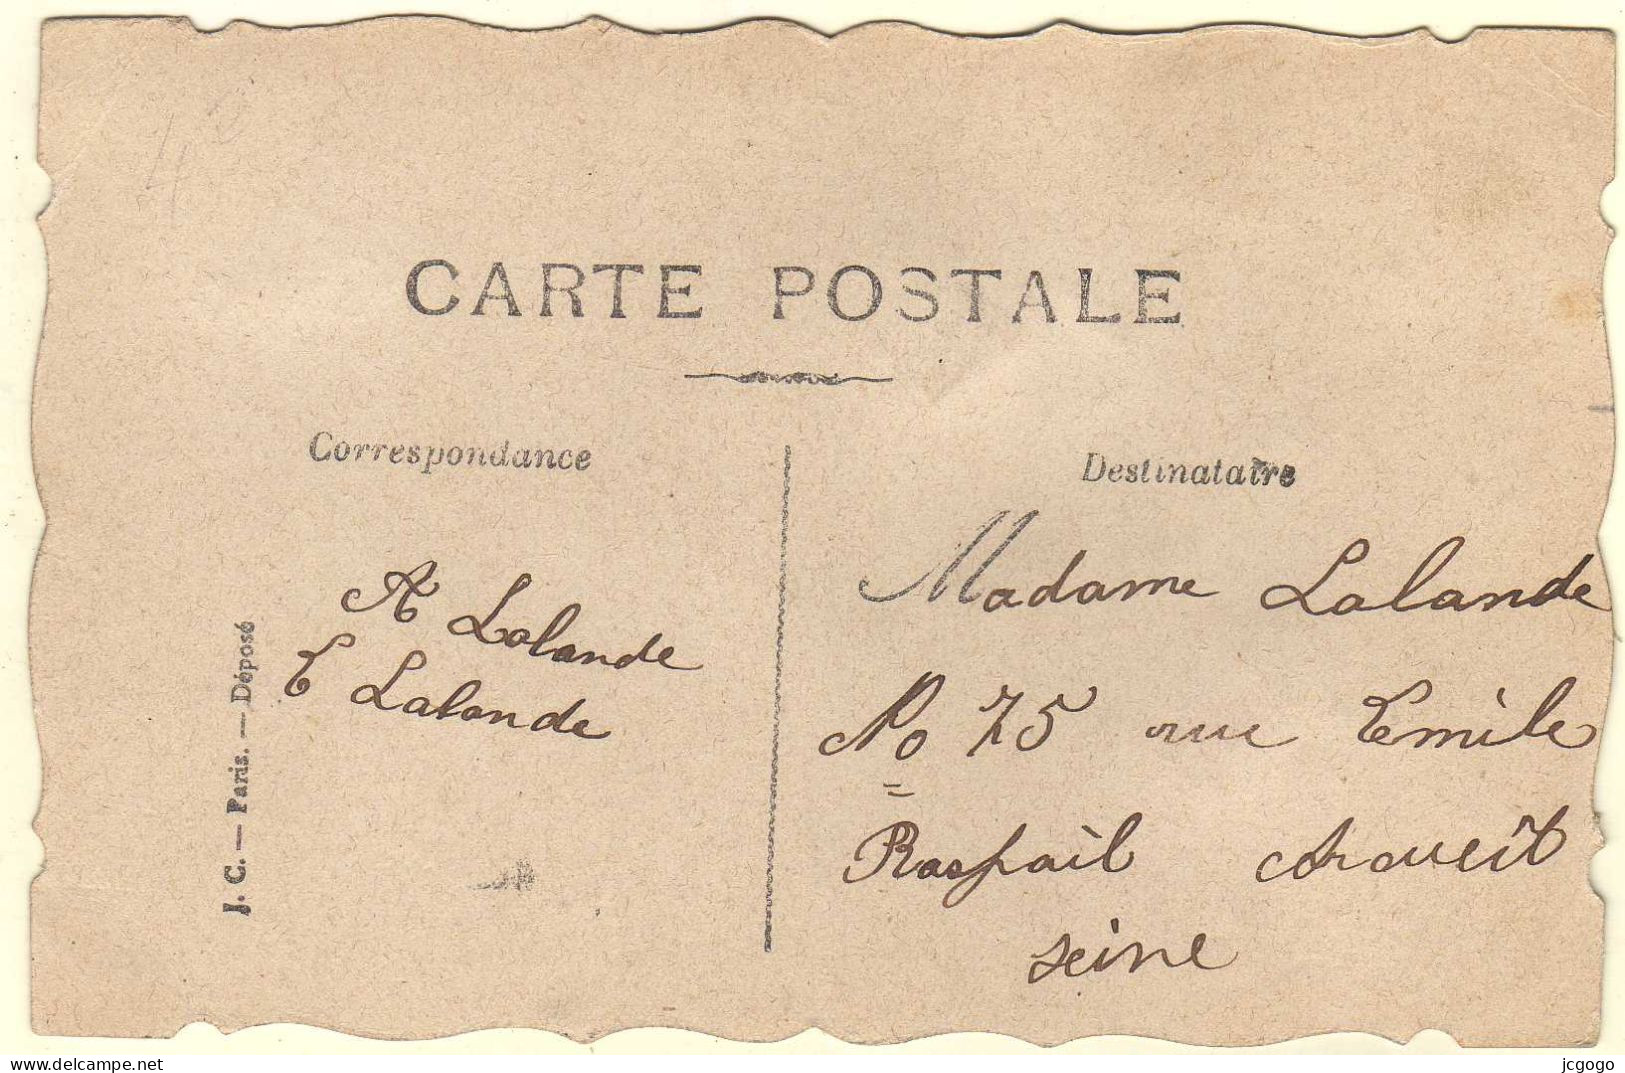 CARTE POSTALE
Correspondance
A Lalande
E Lalande
J. C. — Paris. — Déposé
Destinataire
Madame Lalande
No 75 rue Emile
Raspail Arcueil
seine
www.delcampe.net
jcgogo